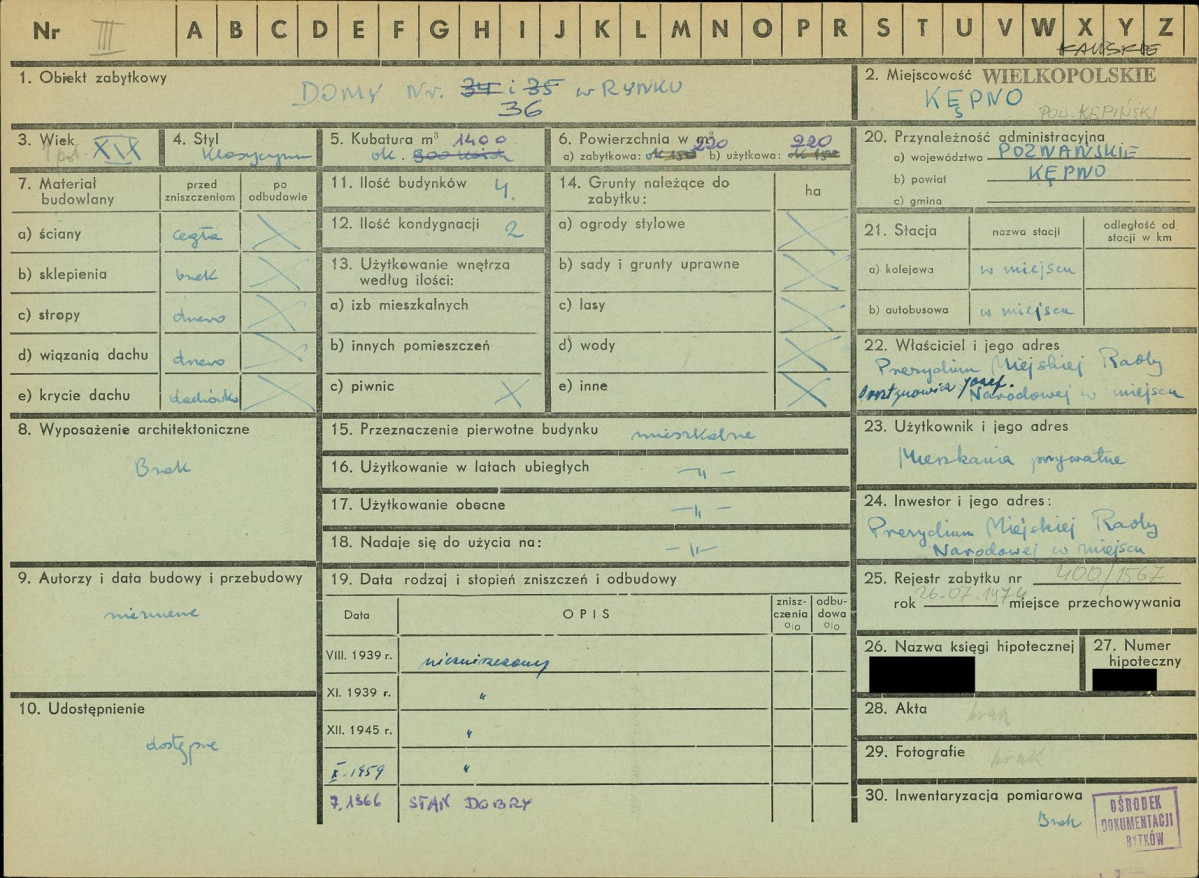 Nr III
A B C D E F G H I J K L M N O P R S T U V W X Y Z
1. Obiekt zabytkowy
DOMY Nr. 34 i 35 w RYNKU
36
2. Miejscowość WIELKOPOLSKIE
KĘPNO
POW. KĘPIŃSKI
3. Wiek
poł. XIX
4. Styl
Klasycyzm
5. Kubatura m³ 1400
ok.
6. Powierzchnia w m²
a) zabytkowa: 220 b) użytkowa: 220
20. Przynależność administracyjna
a) województwo POZNAŃSKIE
b) powiat KĘPNO
c) gmina
7. Materiał budowlany
przed zniszczeniem
po odbudowie
a) ściany cegła
b) sklepienia brak
c) stropy drewno
d) wiązania dachu drewno
e) krycie dachu dachówka
11. Ilość budynków 4.
12. Ilość kondygnacji 2
13. Użytkowanie wnętrza według ilości:
a) izb mieszkalnych
b) innych pomieszczeń
c) piwnic
14. Grunty należące do zabytku:
ha
a) ogrody stylowe
b) sady i grunty uprawne
c) lasy
d) wody
e) inne
21. Stacja
nazwa stacji
odległość od stacji w km
a) kolejowa w miejscu
b) autobusowa w miejscu
22. Właściciel i jego adres
Prezydium Miejskiej Rady
Józef.
Narodowej w miejscu
8. Wyposażenie architektoniczne
Brak
15. Przeznaczenie pierwotne budynku mieszkalne
16. Użytkowanie w latach ubiegłych -"-
17. Użytkowanie obecne -"-
18. Nadaje się do użycia na: -"-
23. Użytkownik i jego adres
Mieszkania prywatne
24. Inwestor i jego adres:
Prezydium Miejskiej Rady
Narodowej w miejscu
9. Autorzy i data budowy i przebudowy
nieznane
19. Data rodzaj i stopień zniszczeń i odbudowy
Data
OPIS
znisz-czenia %
odbu-dowa %
VIII. 1939 r. niezniszczony
XI. 1939 r. "
XII. 1945 r. "
X. 1959 "
7. 1966 STAN DOBRY
25. Rejestr zabytku nr 400/1567
rok 26.07.1974 miejsce przechowywania
26. Nazwa księgi hipotecznej
27. Numer hipoteczny
10. Udostępnienie
dostępne
28. Akta brak
29. Fotografie brak
30. Inwentaryzacja pomiarowa
Brak
OŚRODEK
DOKUMENTACJI